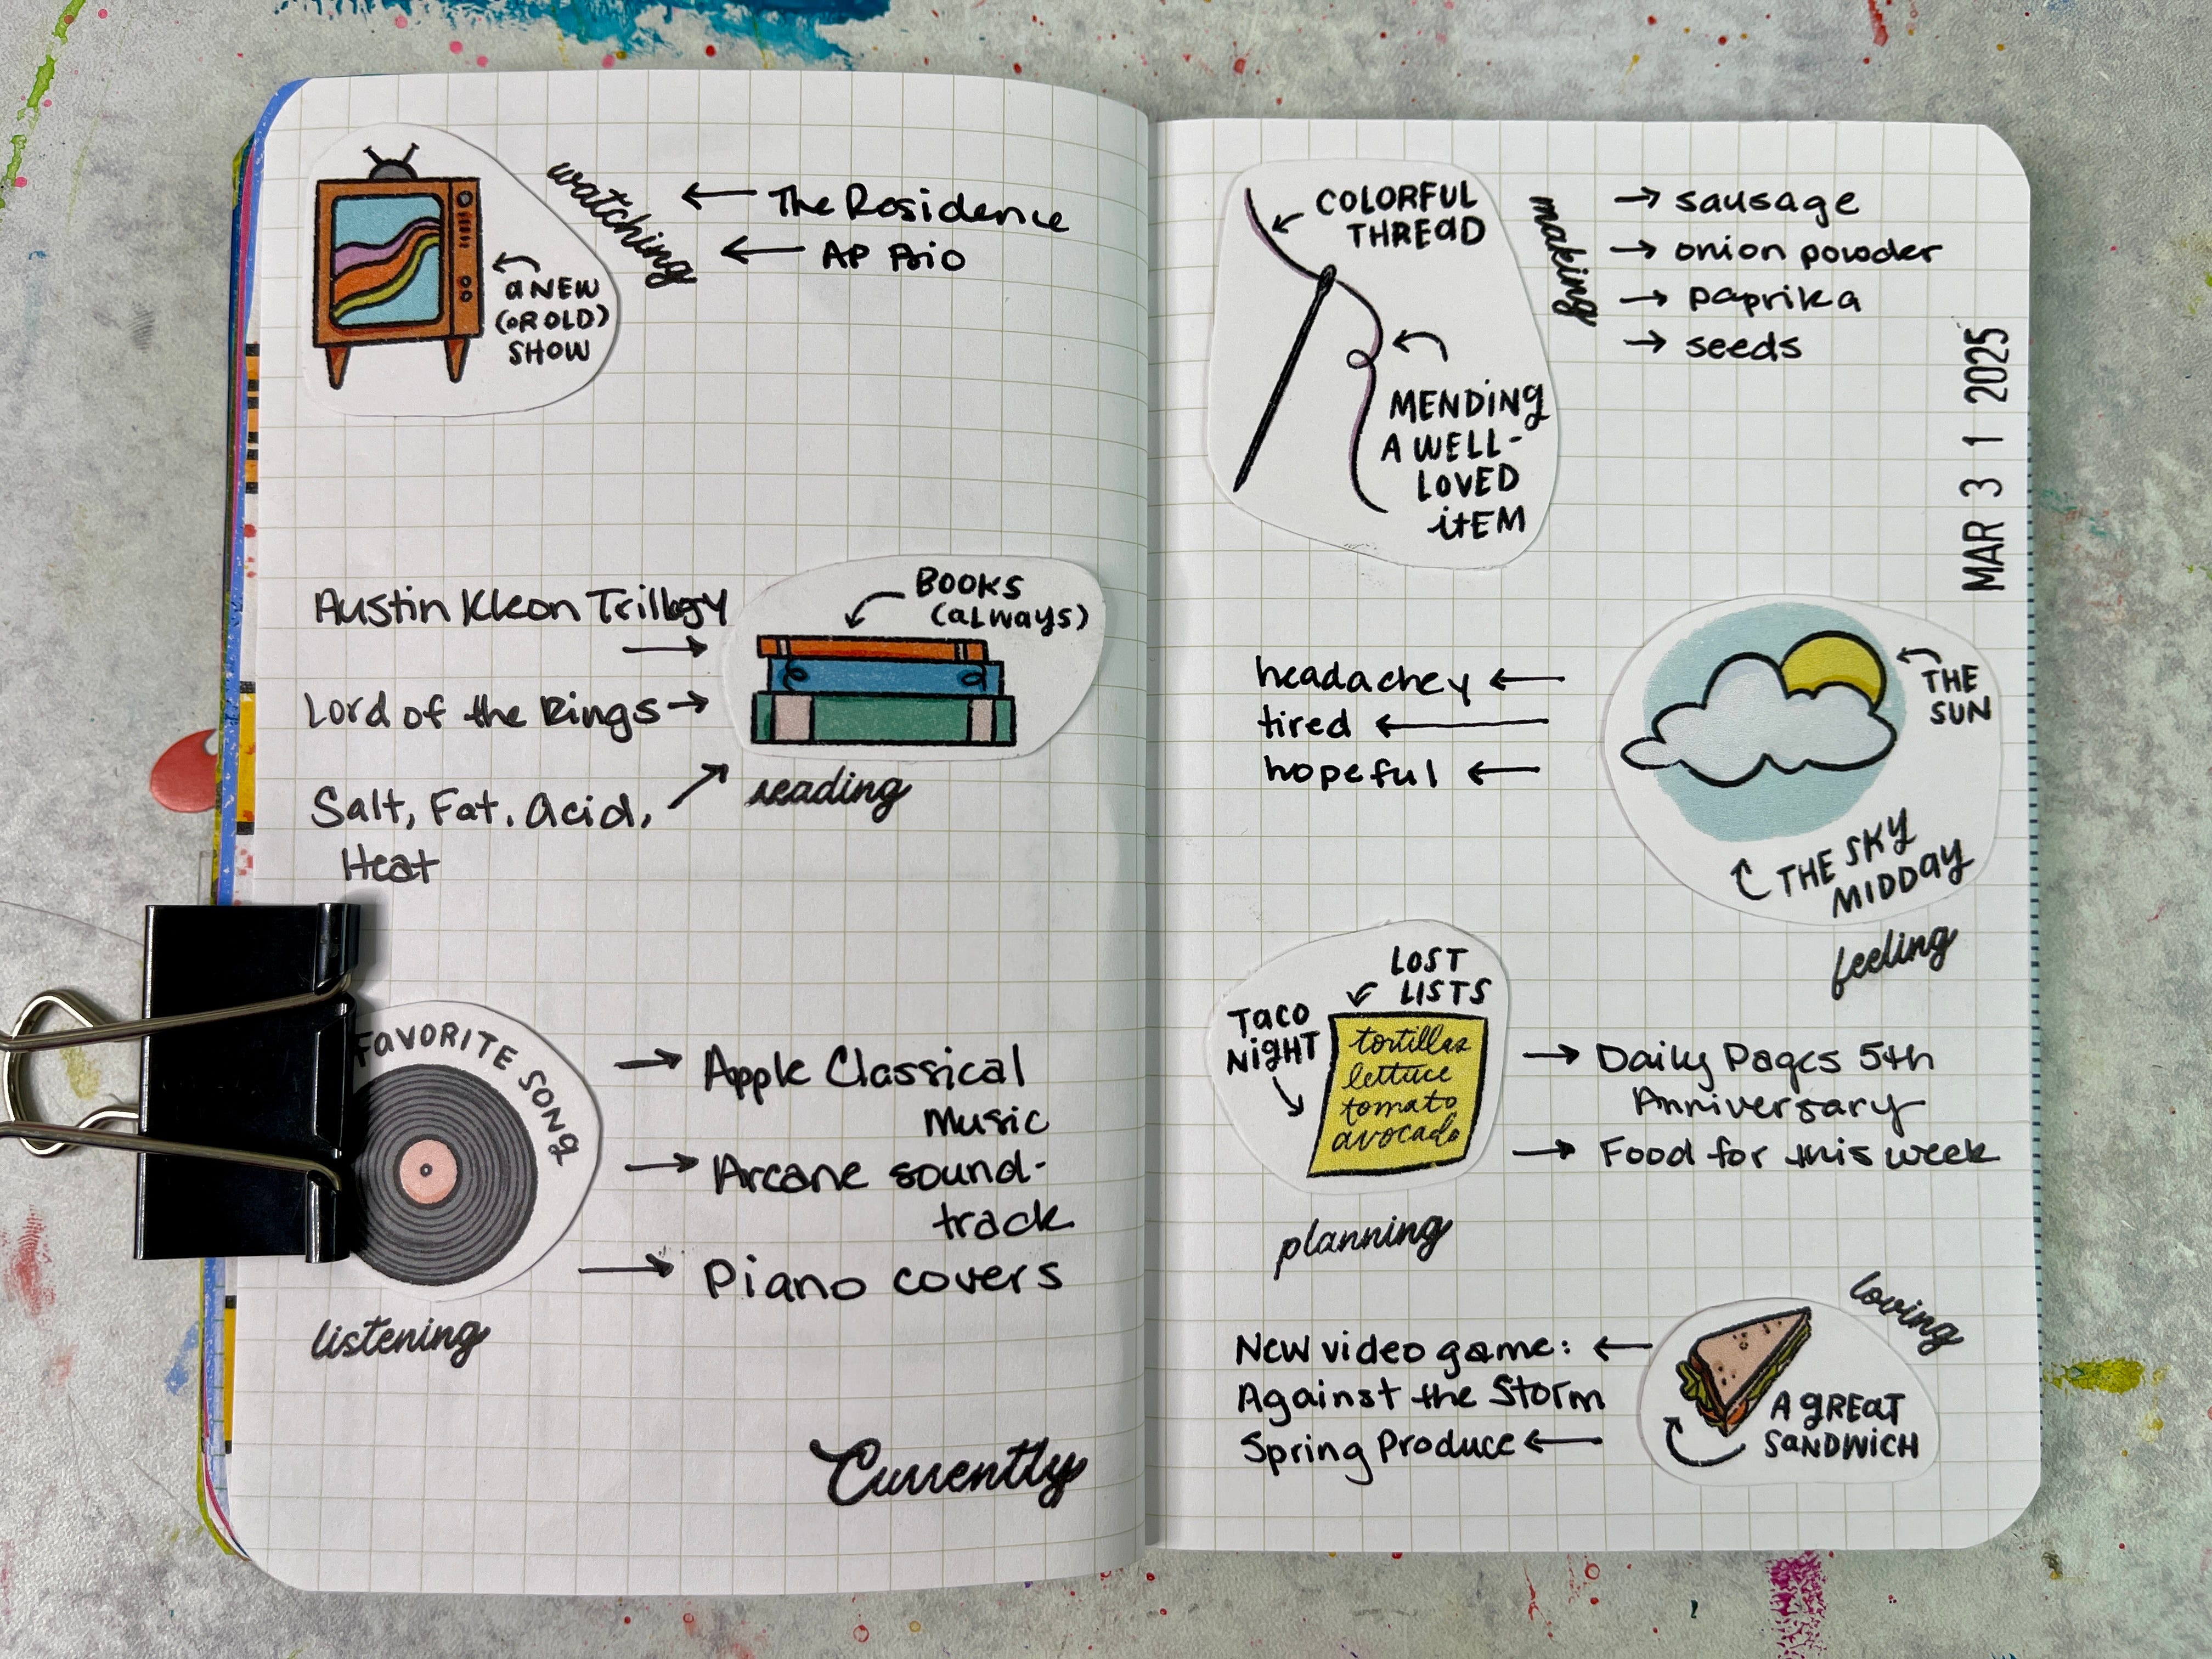 watching
The Residence
AP Bio
a NEW
(OR OLD)
SHOW
Austin Kleon Trilogy
Lord of the Rings
Salt, Fat, Acid,
Heat
BOOKS
(always)
reading
FAVORITE SONG
Apple Classical
Music
Arcane sound-
track
Piano covers
listening
Currently
COLORFUL
THREAD
MENDING
A WELL-
LOVED
iTEM
making
sausage
onion powder
paprika
seeds
MAR 31 2025
headachey
tired
hopeful
THE
SUN
THE SKY
MIDDAY
feeling
LOST
LISTS
TACO
NIGHT
tortillas
lettuce
tomato
avocado
planning
Daily Pages 5th
Anniversary
Food for this week
loving
New video game:
Against the Storm
Spring Produce
A GREAT
SANDWICH